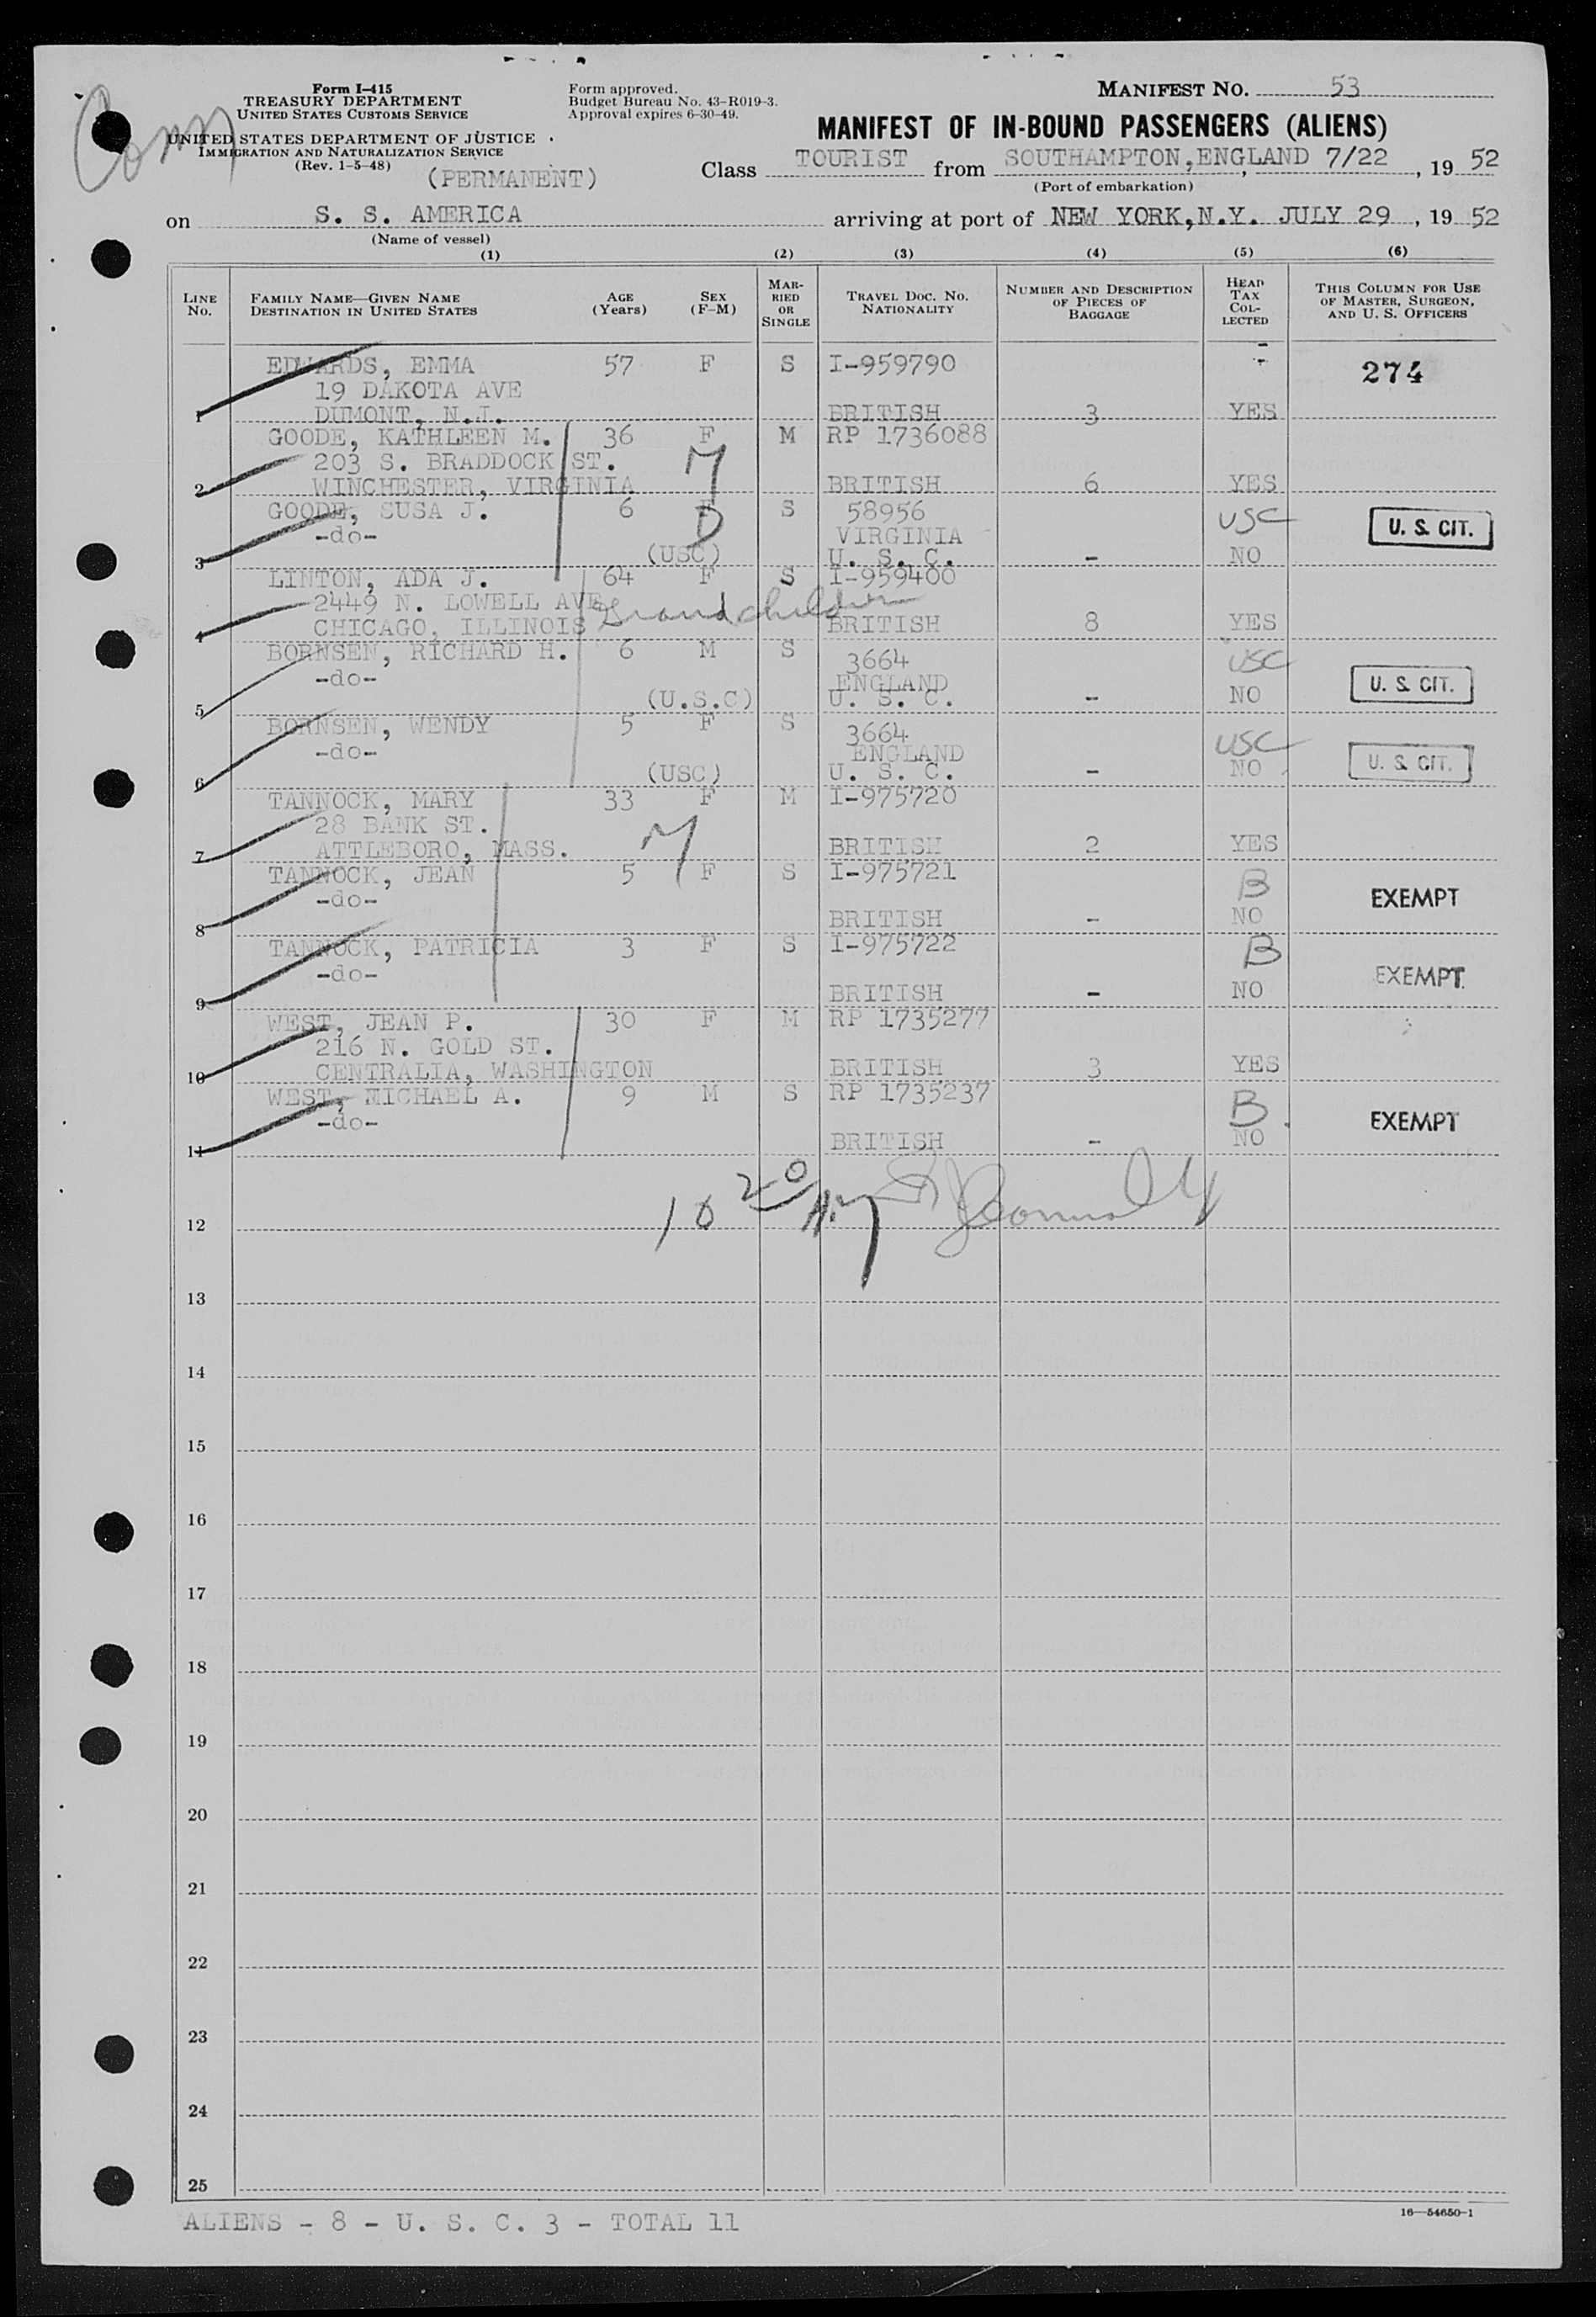 Form I-415
TREASURY DEPARTMENT
UNITED STATES CUSTOMS SERVICE
UNITED STATES DEPARTMENT OF JUSTICE
IMMIGRATION AND NATURALIZATION SERVICE
(Rev. 1-5-48)
(PERMANENT)
Form approved.
Budget Bureau No. 43-R019-3.
Approval expires 6-30-49.
MANIFEST NO. 53
MANIFEST OF IN-BOUND PASSENGERS (ALIENS)
Class TOURIST from SOUTHAMPTON, ENGLAND 7/22, 19 52
(Port of embarkation)
on S. S. AMERICA arriving at port of NEW YORK, N.Y. JULY 29, 19 52
(Name of vessel)
(1) (2) (3) (4) (5) (6)
LINE No. FAMILY NAME—GIVEN NAME DESTINATION IN UNITED STATES AGE (Years) SEX (F-M) MARRIED OR SINGLE TRAVEL DOC. NO. NATIONALITY NUMBER AND DESCRIPTION OF PIECES OF BAGGAGE HEAD TAX COLLECTED THIS COLUMN FOR USE OF MASTER, SURGEON, AND U. S. OFFICERS
EDWARDS, EMMA 57 F S I-959790 - 274
19 DAKOTA AVE
1 DUMONT, N.J. BRITISH 3 YES
GOODE, KATHLEEN M. 36 F M RP 1736088
203 S. BRADDOCK ST. M
2 WINCHESTER, VIRGINIA BRITISH 6 YES
GOODE, SUSA J. 6 F S 58956 USC U. S. CIT.
-do- D VIRGINIA
3 (USC) U. S. C. - NO
LINTON, ADA J. 64 F S I-959400
2449 N. LOWELL AVE Grandchildren
4 CHICAGO, ILLINOIS BRITISH 8 YES
BORNSEN, RICHARD H. 6 M S 3664 USC
-do- ENGLAND U. S. CIT.
5 (U.S.C) U. S. C. - NO
BORNSEN, WENDY 5 F S 3664 USC
-do- ENGLAND U. S. CIT.
6 (USC) U. S. C. - NO
TANNOCK, MARY 33 F M I-975720
28 BANK ST. M
7 ATTLEBORO, MASS. BRITISH 2 YES
TANNOCK, JEAN 5 F S I-975721 B
-do- EXEMPT
8 BRITISH - NO
TANNOCK, PATRICIA 3 F S I-975722 B
-do- EXEMPT
9 BRITISH - NO
WEST, JEAN P. 30 F M RP 1735277
216 N. GOLD ST.
10 CENTRALIA, WASHINGTON BRITISH 3 YES
WEST, MICHAEL A. 9 M S RP 1735237 B
-do- EXEMPT
11 BRITISH - NO
10 20 A.M
12
13
14
15
16
17
18
19
20
21
22
23
24
25
ALIENS - 8 - U. S. C. 3 - TOTAL 11
16—54650-1